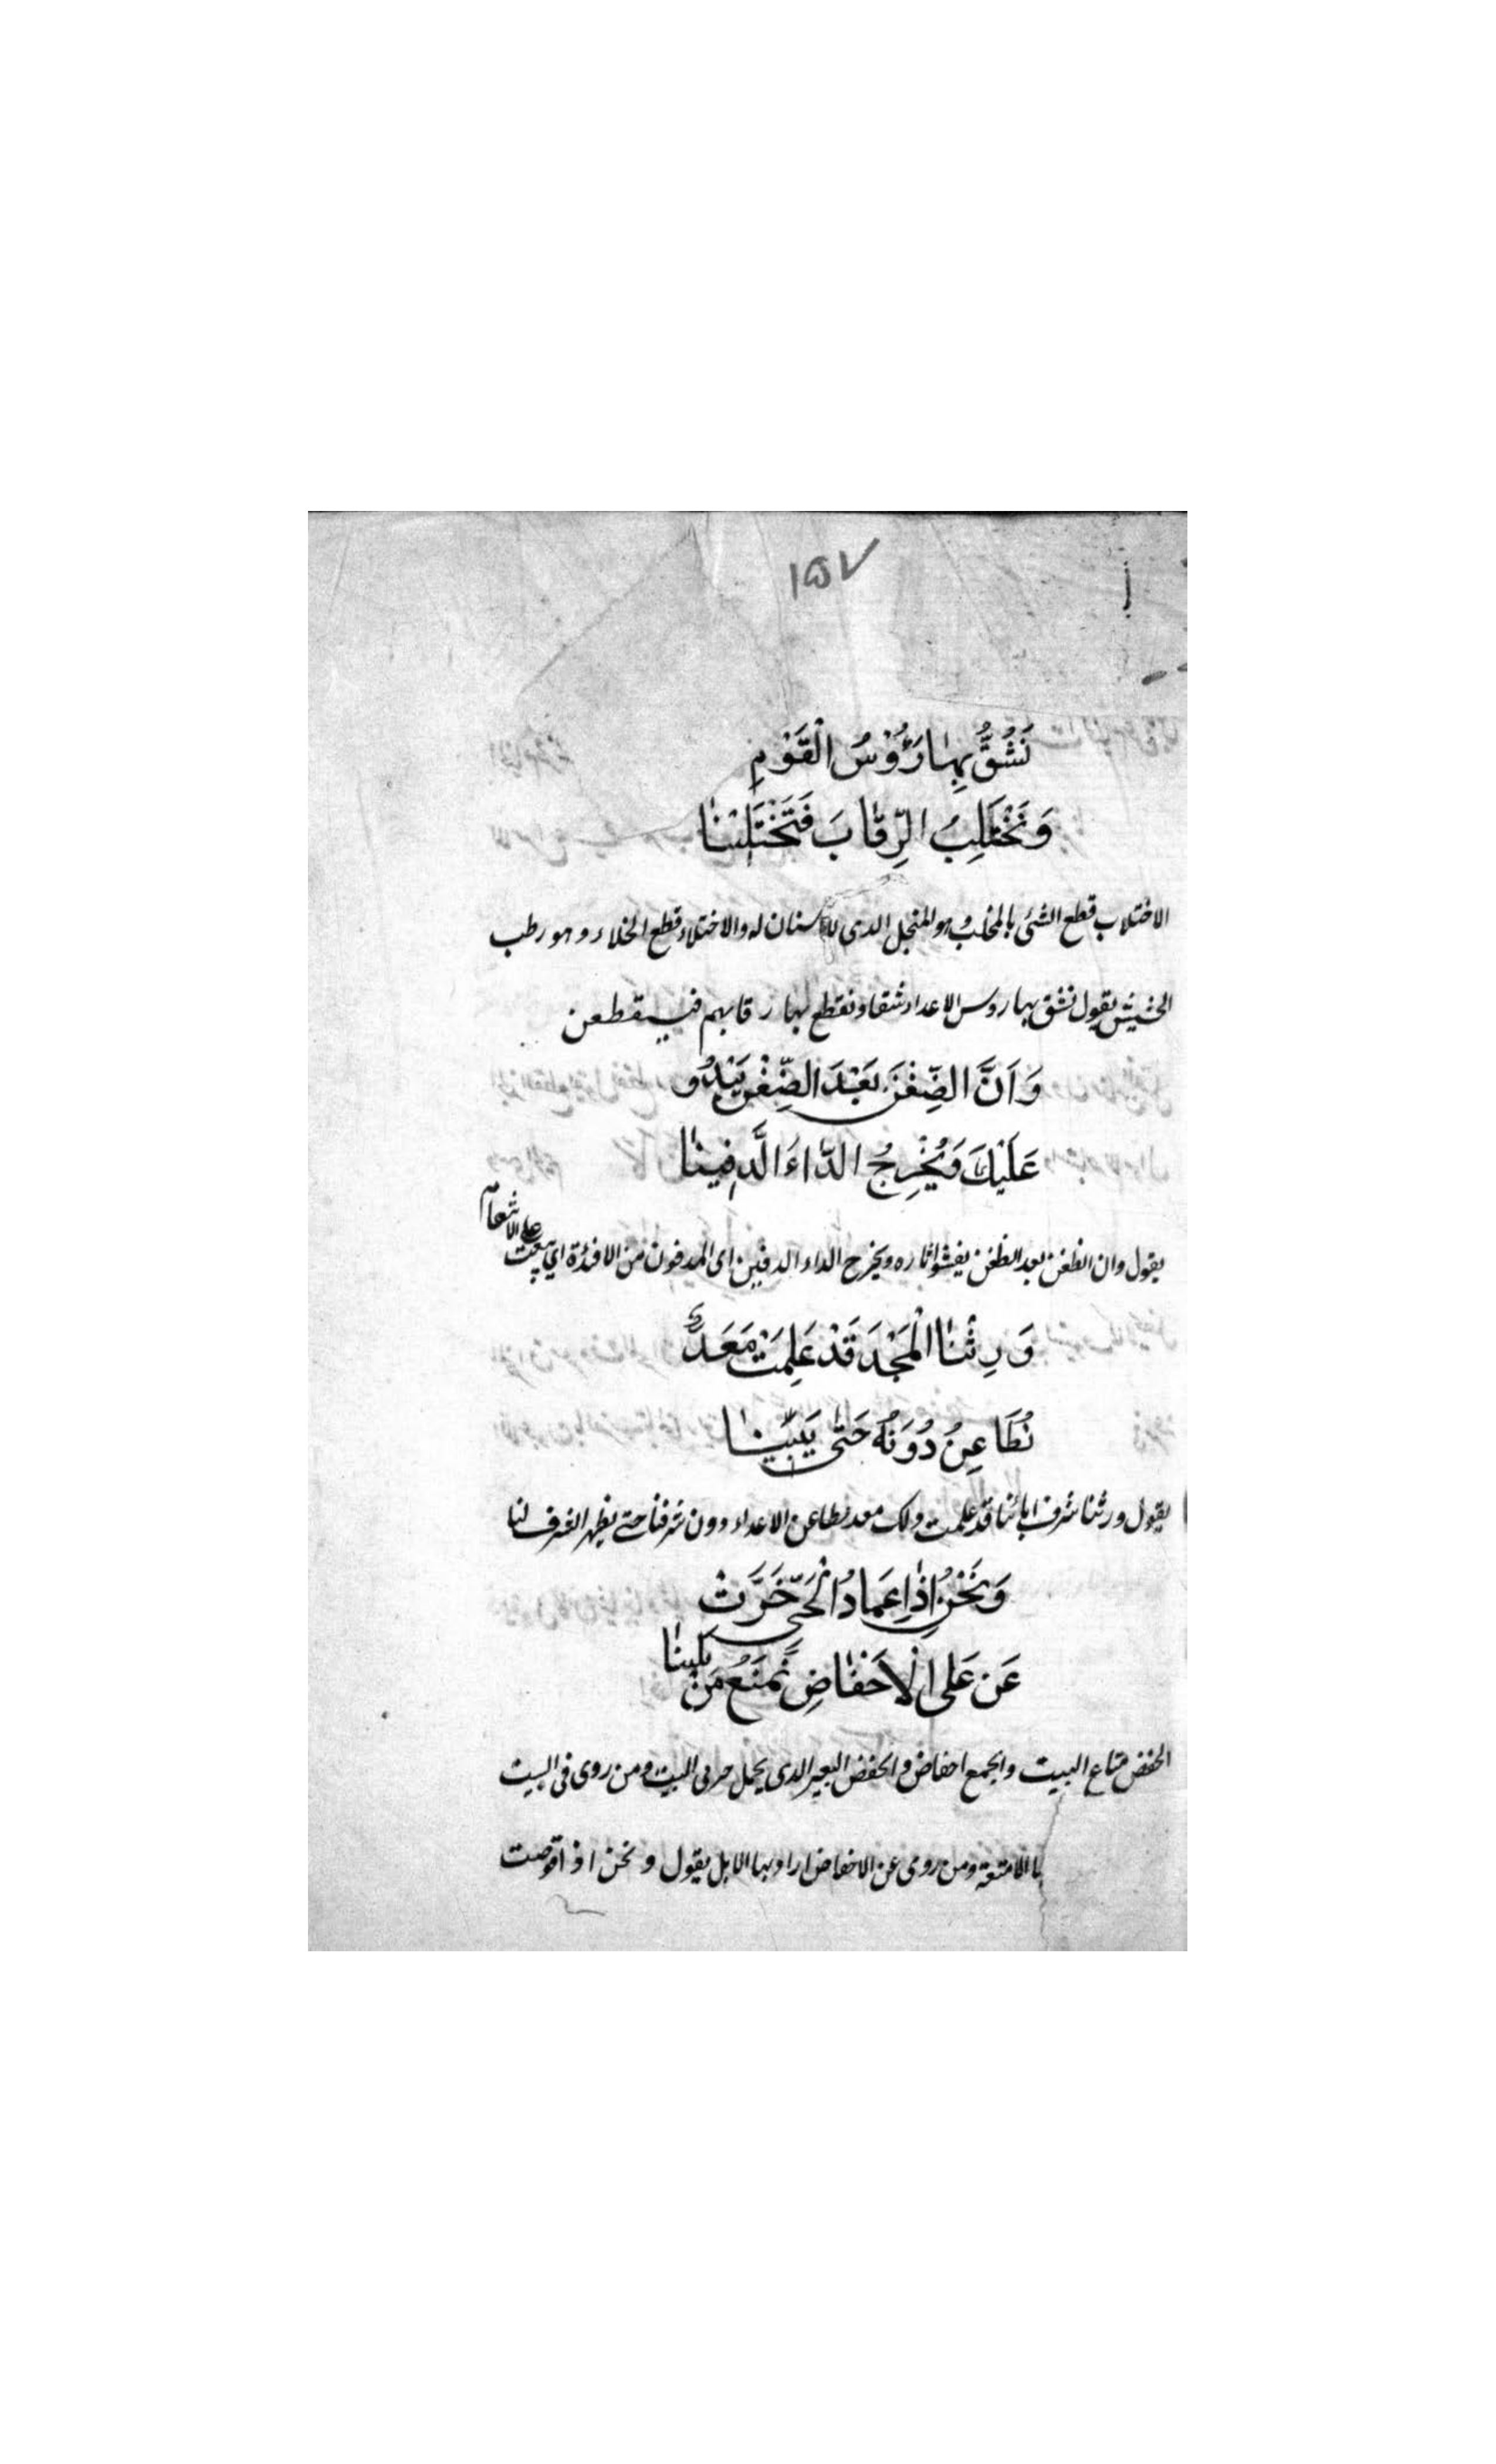 ١٥٧
نَشُقُّ بِهَا رُؤُسَ الْقَوْمِ
وَنَخْتَلِبُ الرِّقَابَ فَتَخْتَلِينَا
الاختلاب قطع الشئ بالمخلب وهو المنجل الذى لا اسنان له والاختلاء قطع الخلاء وهو رطب
الحشيش يقول نشق بها روس الاعداء شقا ونقطع بها رقابهم فيقطعن
وَاَنَّ الضِّغْنَ بَعْدَ الضِّغْنِ يَبْدُو
عَلَيْكَ وَيُخْرِجُ الدَّاءَ الدَّفِينَا
يقول وان الظغن بعد الظغن يفشو اثاره ويخرج الداء الدفين اى المدفون من الافئدة اى يبعث
على الا
وَرِثْنَا الْمَجْدَ قَدْ عَلِمَتْ مَعَدٌّ
نُطَاعِنُ دُونَهُ حَتَّى يَبِينَا
يقول ورثنا شرف ابائنا قد علمت ذلك معد نطاعن الاعداء دون شرفنا حتى يظهر الشرف لنا
وَنَحْنُ اِذَا عِمَادُ الْحَىِّ خَرَّتْ
عَن عَلَى الْاَحْفَاضِ نَمْنَعُ مَنْ يَلِينَا
الحفض متاع البيت والجمع احفاض والحفض البعير الذى يحمل خرثى البيت ومن روى فى البيت
بالامتعة ومن روى عن الاحفاض اراد بها الابل يقول ونحن اذ اقوضت